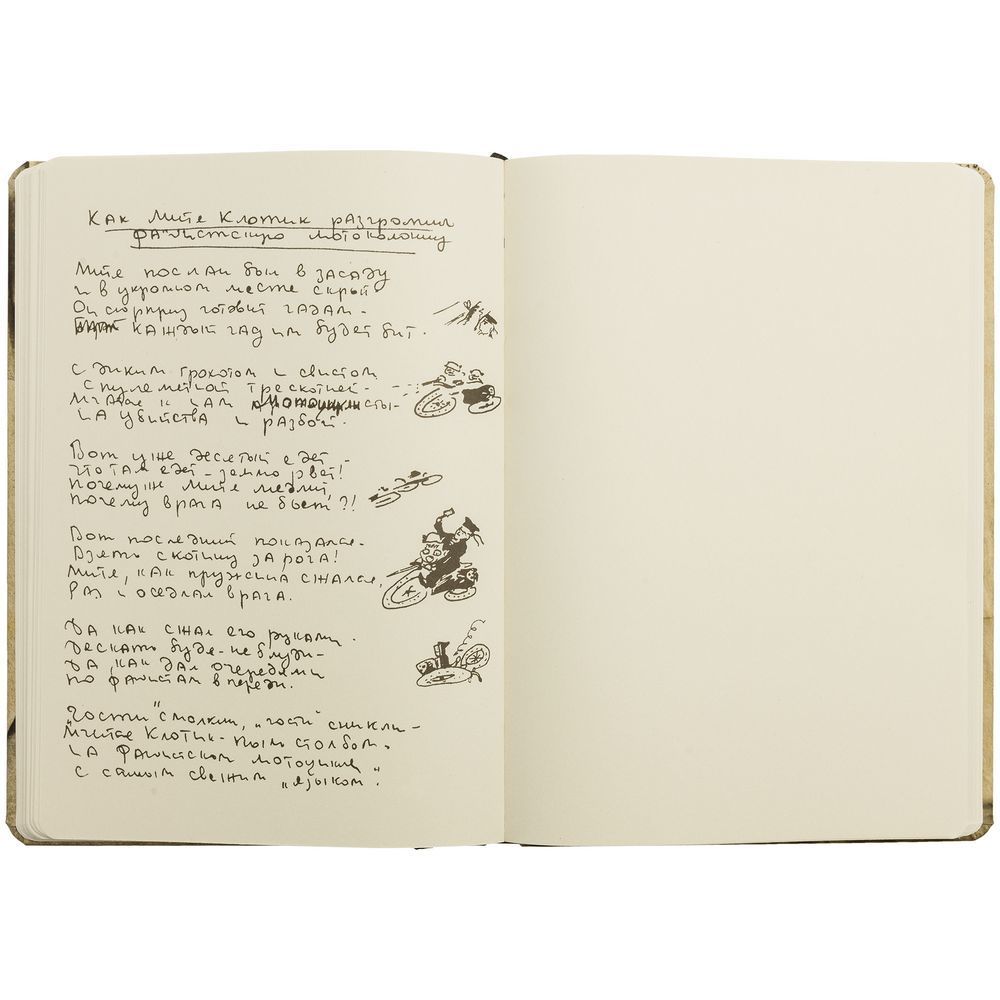 Как Митя Клотик разгромил
фашистскую мотоколонну
Митя послан был в засаду
и в укромном месте скрыт
Он сюрприз готовит гадам-
каждый гад им будет бит.
С диким грохотом и свистом
с пулеметной трескотней-
Мчатся к нам мотоциклисты-
на убийства и разбой.
Вот уже десятый едет-
что там едет - землю рвет!
Почему ж Митя медлит,
почему врага не бьет?!
Вот последний показался-
Взять скотину за рога!
Митя, как пружина сжался,
Раз и оседлал врага.
Да как сжал его руками-
Дескать будя- не блуди-
Да как дал очередями
по фашистам впереди.
"Гости" смолкли, "гости" сникли-
Мчится Клотик- пыль столбом.
на фашистском мотоцикле
с самым свежим "языком".